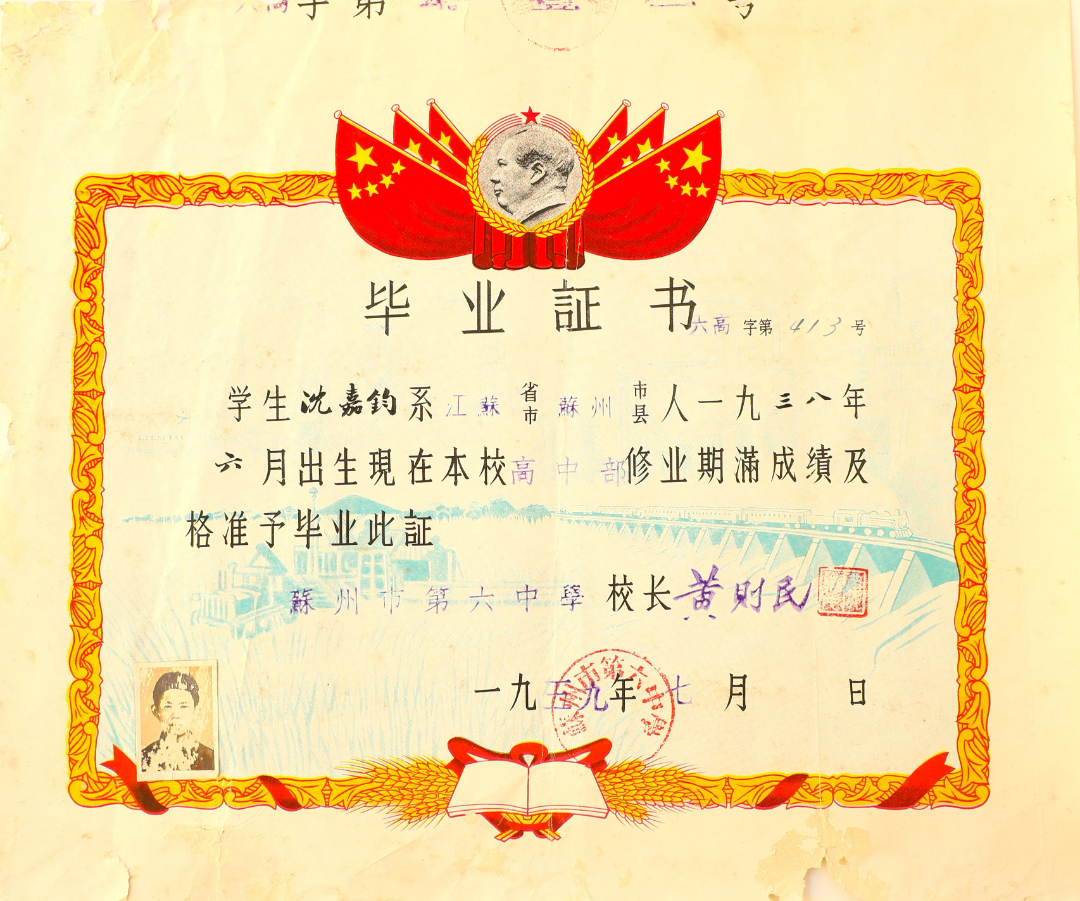 字第 号
毕业証书
六高 字第 413 号
学生沈嘉鈞系江蘇省市蘇州市县人一九三八年
六月出生現在本校高中部修业期滿成績及
格准予毕业此証
蘇州市第六中學 校长黄則民
一九五九年七月 日
蘇州市第六中學